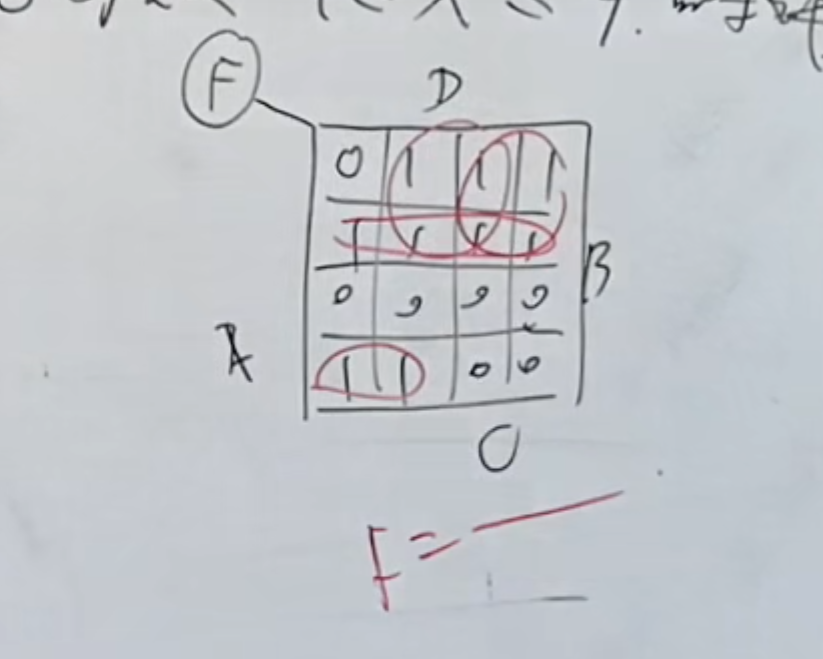 F
D
0 1 1 1
1 1 1 1
B
0 0 0 0
A
1 1 0 0
C
F =